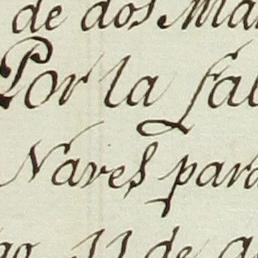 de dos Mar
Por la fal
Naves para
11 de